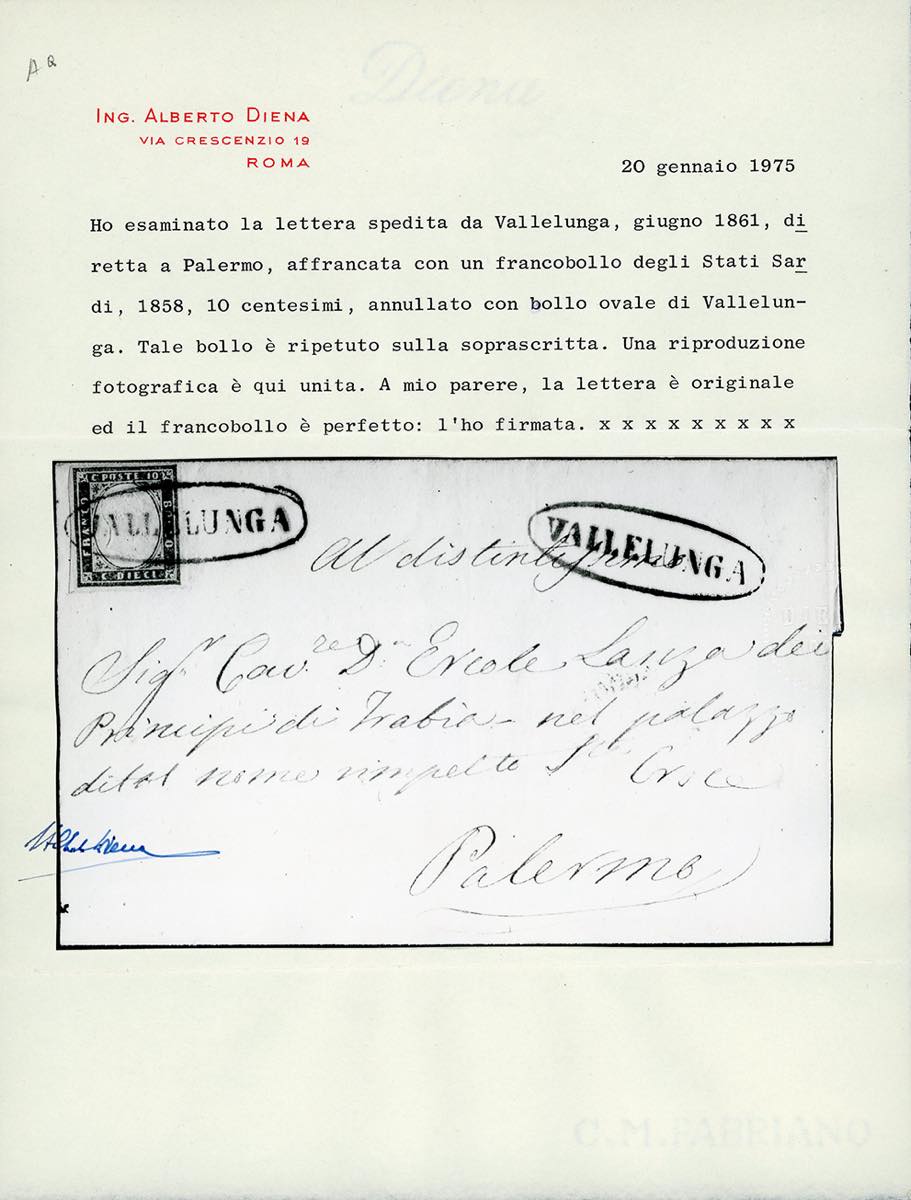 A
Diena
ING. ALBERTO DIENA
VIA CRESCENZIO 19
ROMA
20 gennaio 1975
Ho esaminato la lettera spedita da Vallelunga, giugno 1861, di
retta a Palermo, affrancata con un francobollo degli Stati Sar
di, 1858, 10 centesimi, annullato con bollo ovale di Vallelun-
ga. Tale bollo è ripetuto sulla soprascritta. Una riproduzione
fotografica è qui unita. A mio parere, la lettera è originale
ed il francobollo è perfetto: l'ho firmata. x x x x x x x x x
C POSTE 10
FRANCO
BOLLO
C. DIECI
VALLELUNGA
VALLELUNGA
Al distintissimo
Sigr Cavre Dn Ercole Lanza dei
Principi di Trabia - nel palazzo
di tal nome rimpetto Sta Croce
Palermo
Alberto Diena
C.M.FABRIANO